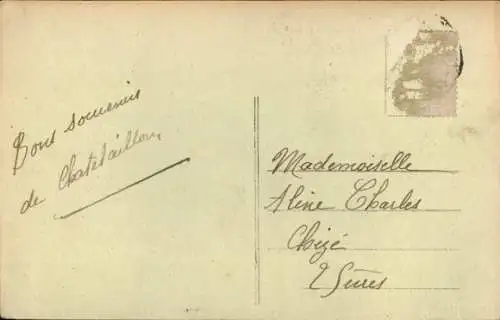 Bons souvenirs
de Chatelaillon
Mademoiselle
Aline Charles
Chizé
2 Sèvres